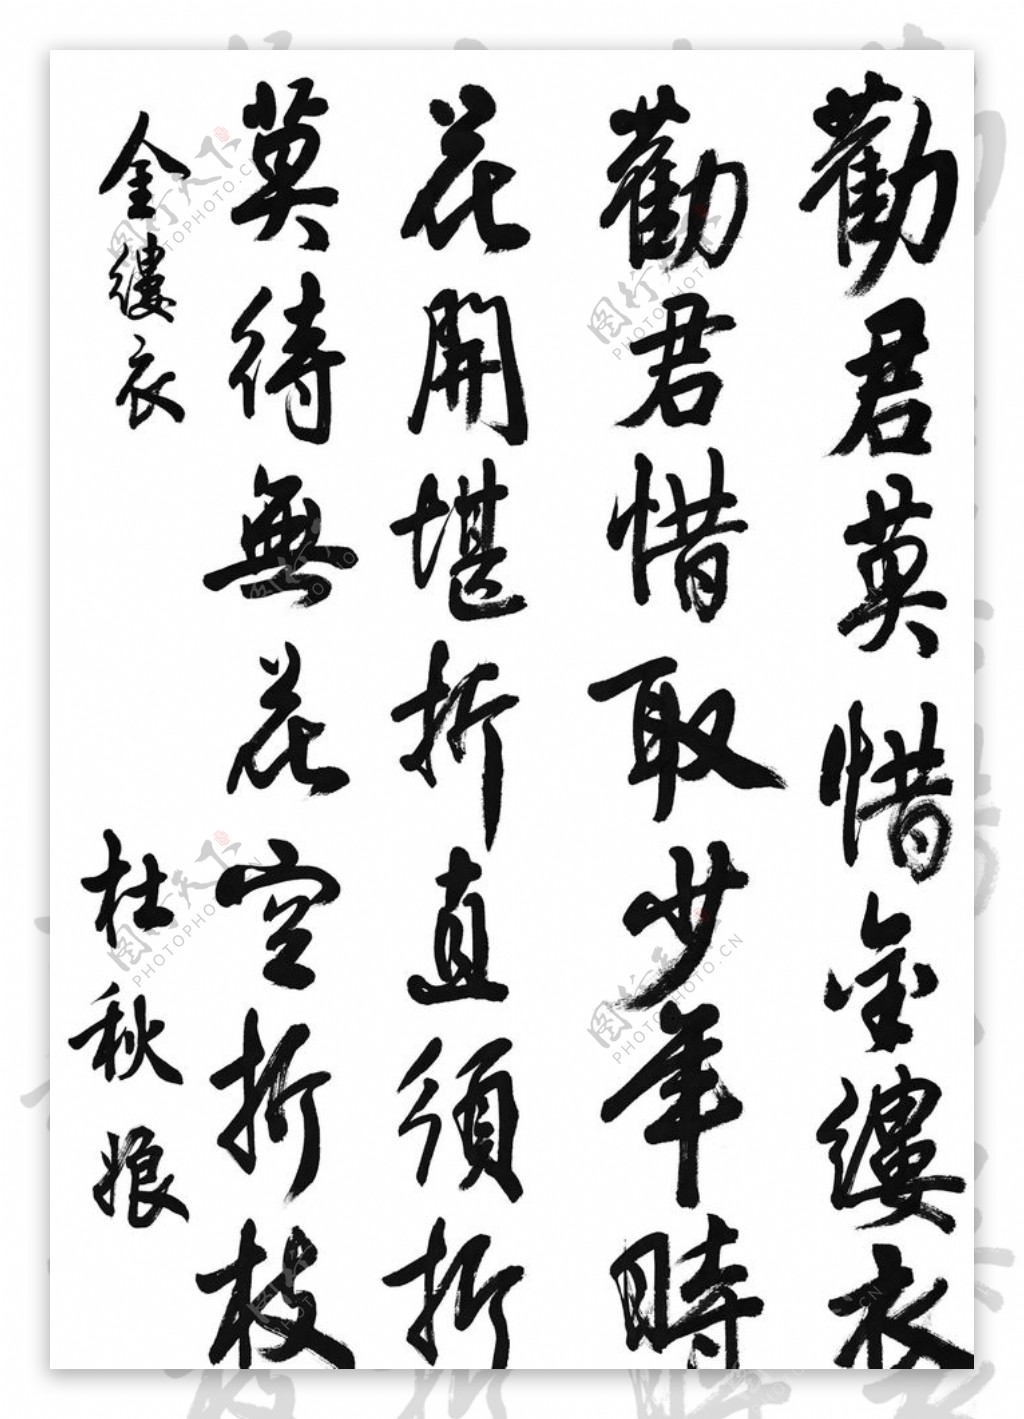 勸君莫惜金縷衣
勸君惜取少年時
花開堪折直須折
莫待無花空折枝
金縷衣
杜秋娘
图行天下
PHOTOPHOTO.CN